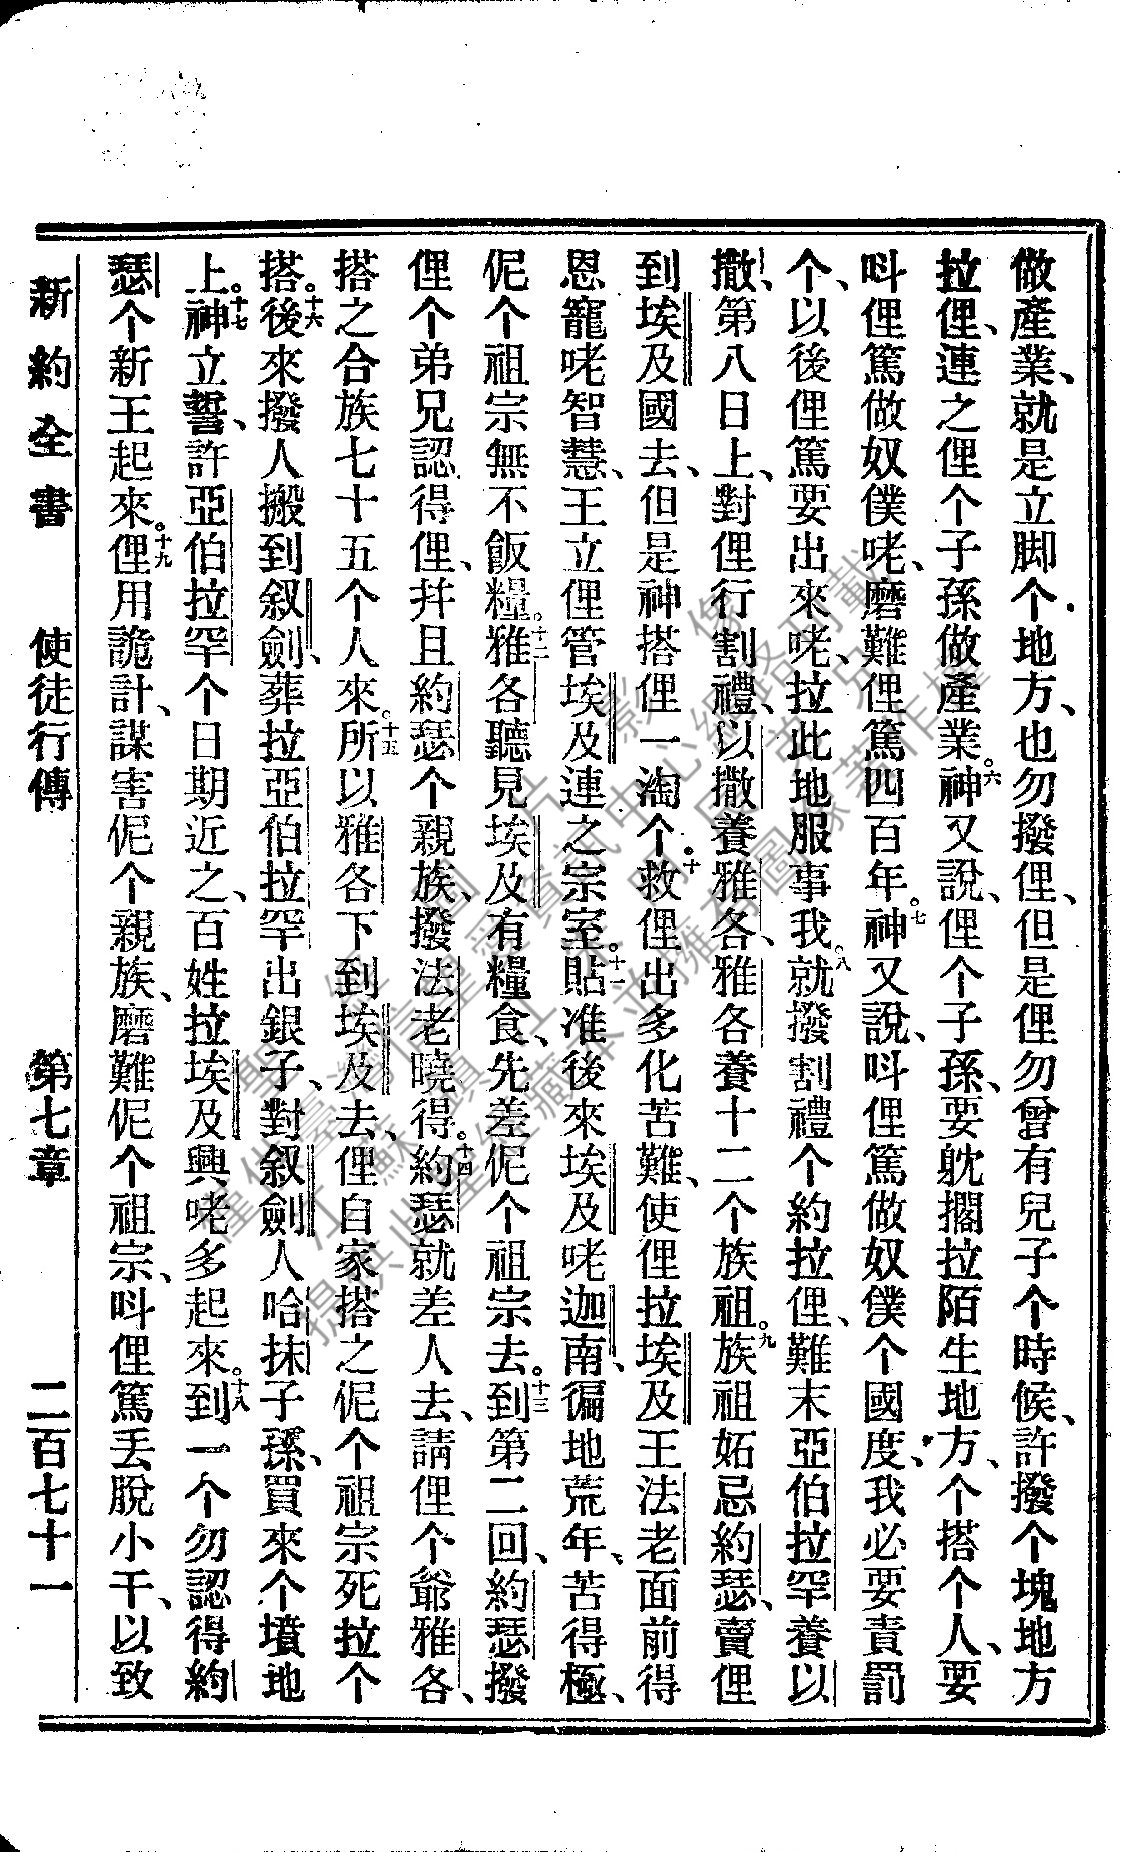 做產業、就是立脚个地方、也勿撥俚、但是俚勿曾有兒子个時候、許撥个塊地方
拉俚、連之俚个子孫做產業。六神又說、俚个子孫、要躭擱拉陌生地方、个搭个人、要
呌俚篤做奴僕咾、磨難俚篤四百年。七神又說、呌俚篤做奴僕个國度、我必要責罰
个、以後俚篤要出來咾、拉此地服事我。八就撥割禮个約拉俚、難末亞伯拉罕養以
撒、第八日上、對俚行割禮、以撒養雅各、雅各養十二个族祖。九族祖妬忌約瑟、賣俚
到埃及國去、但是神搭俚一淘个、十救俚出多化苦難、使俚拉埃及王法老面前得
恩寵咾智慧、王立俚管埃及連之宗室。十一貼准後來埃及咾迦南、徧地荒年、苦得極、
伲个祖宗無不飯糧。十二雅各聽見埃及有糧食、先差伲个祖宗去。十三到第二回、約瑟撥
俚个弟兄認得俚、幷且約瑟个親族、撥法老曉得。十四約瑟就差人去、請俚个爺雅各、
搭之合族七十五个人來。十五所以雅各下到埃及去、俚自家搭之伲个祖宗死拉个
搭。十六後來撥人搬到叙劍、葬拉亞伯拉罕出銀子、對叙劍人哈抹子孫、買來个墳地
上。十七神立誓、許亞伯拉罕个日期近之、百姓拉埃及興咾多起來。十八到一个勿認得約
瑟个新王起來。十九俚用詭計、謀害伲个親族、磨難伲个祖宗、呌俚篤丟脫小干、以致
新約全書 使徒行傳 第七章 二百七十一